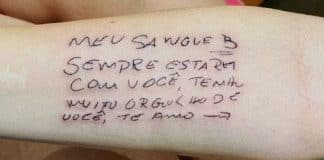 MEU SANGUE B
SEMPRE ESTAREI
COM VOCÊ, TENHO
MUITO ORGULHO DE
VOCÊ, TE AMO →